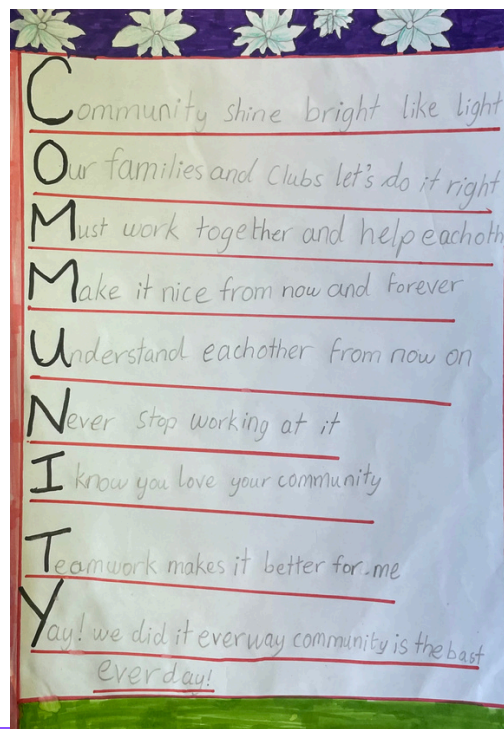 Community shine bright like light
Our families and Clubs let's do it right
Must work together and help eachoth
Make it nice from now and forever
Understand eachother from now on
Never stop working at it
I know you love your community
Teamwork makes it better for me
Yay! we did it everway community is the bast
everday!